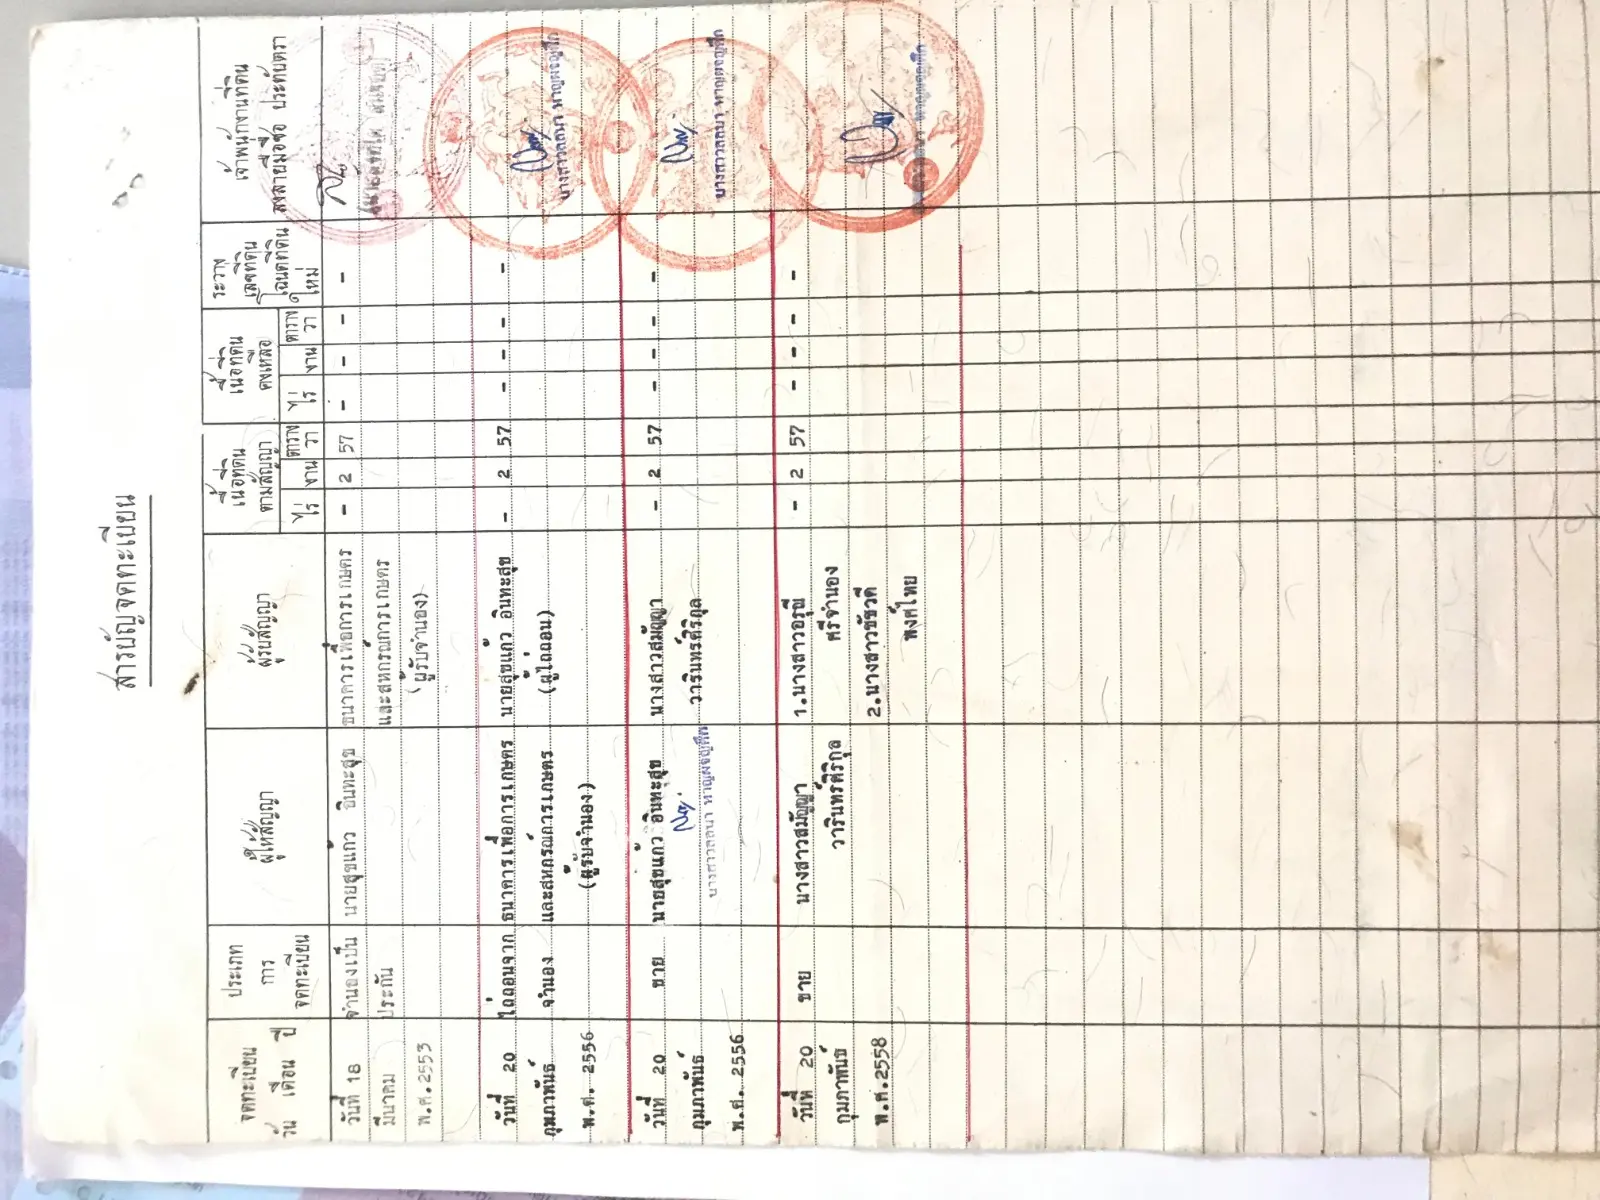 สารบัญจดทะเบียน
จดทะเบียน
วัน เดือน ปี
ประเภท
การ
จดทะเบียน
ผู้ให้สัญญา
ผู้รับสัญญา
เนื้อที่ดิน
ตามสัญญา
ไร่ งาน ตาราง
วา
เนื้อที่ดิน
คงเหลือ
ไร่ งาน ตาราง
วา
ระวาง
เลขที่ดิน
โฉนดที่ดิน
ใหม่
เจ้าพนักงานที่ดิน
ลงลายมือชื่อ ประทับตรา
วันที่ 18 จำนองเป็น นายสุขแก้ว อินทะสุข ธนาคารเพื่อการเกษตร - 2 57 - - - -
มีนาคม ประกัน และสหกรณ์การเกษตร
พ.ศ.2553 (ผู้รับจำนอง)
วันที่ 20 ไถ่ถอนจาก ธนาคารเพื่อการเกษตร นายสุขแก้ว อินทะสุข - 2 57 - - - -
กุมภาพันธ์ จำนอง และสหกรณ์การเกษตร (ผู้ไถ่ถอน)
พ.ศ. 2556 (ผู้รับจำนอง)
นางสาวลลนา หาญผจญศึก
วันที่ 20 ขาย นายสุขแก้ว อินทะสุข นางสาวสมัญญา - 2 57 - - - -
กุมภาพันธ์ วารินทร์ศิริกุล
พ.ศ. 2556 นางสาวลลนา หาญผจญศึก นางสาวลลนา หาญผจญศึก
วันที่ 20 ขาย นางสาวสมัญญา 1.นางสาวอรุณี - 2 57 - - - -
กุมภาพันธ์ วารินทร์ศิริกุล ศรีจำนอง
พ.ศ.2558 2.นางสาวชัชวดี
พงศ์ไทย
หาญผจญศึก